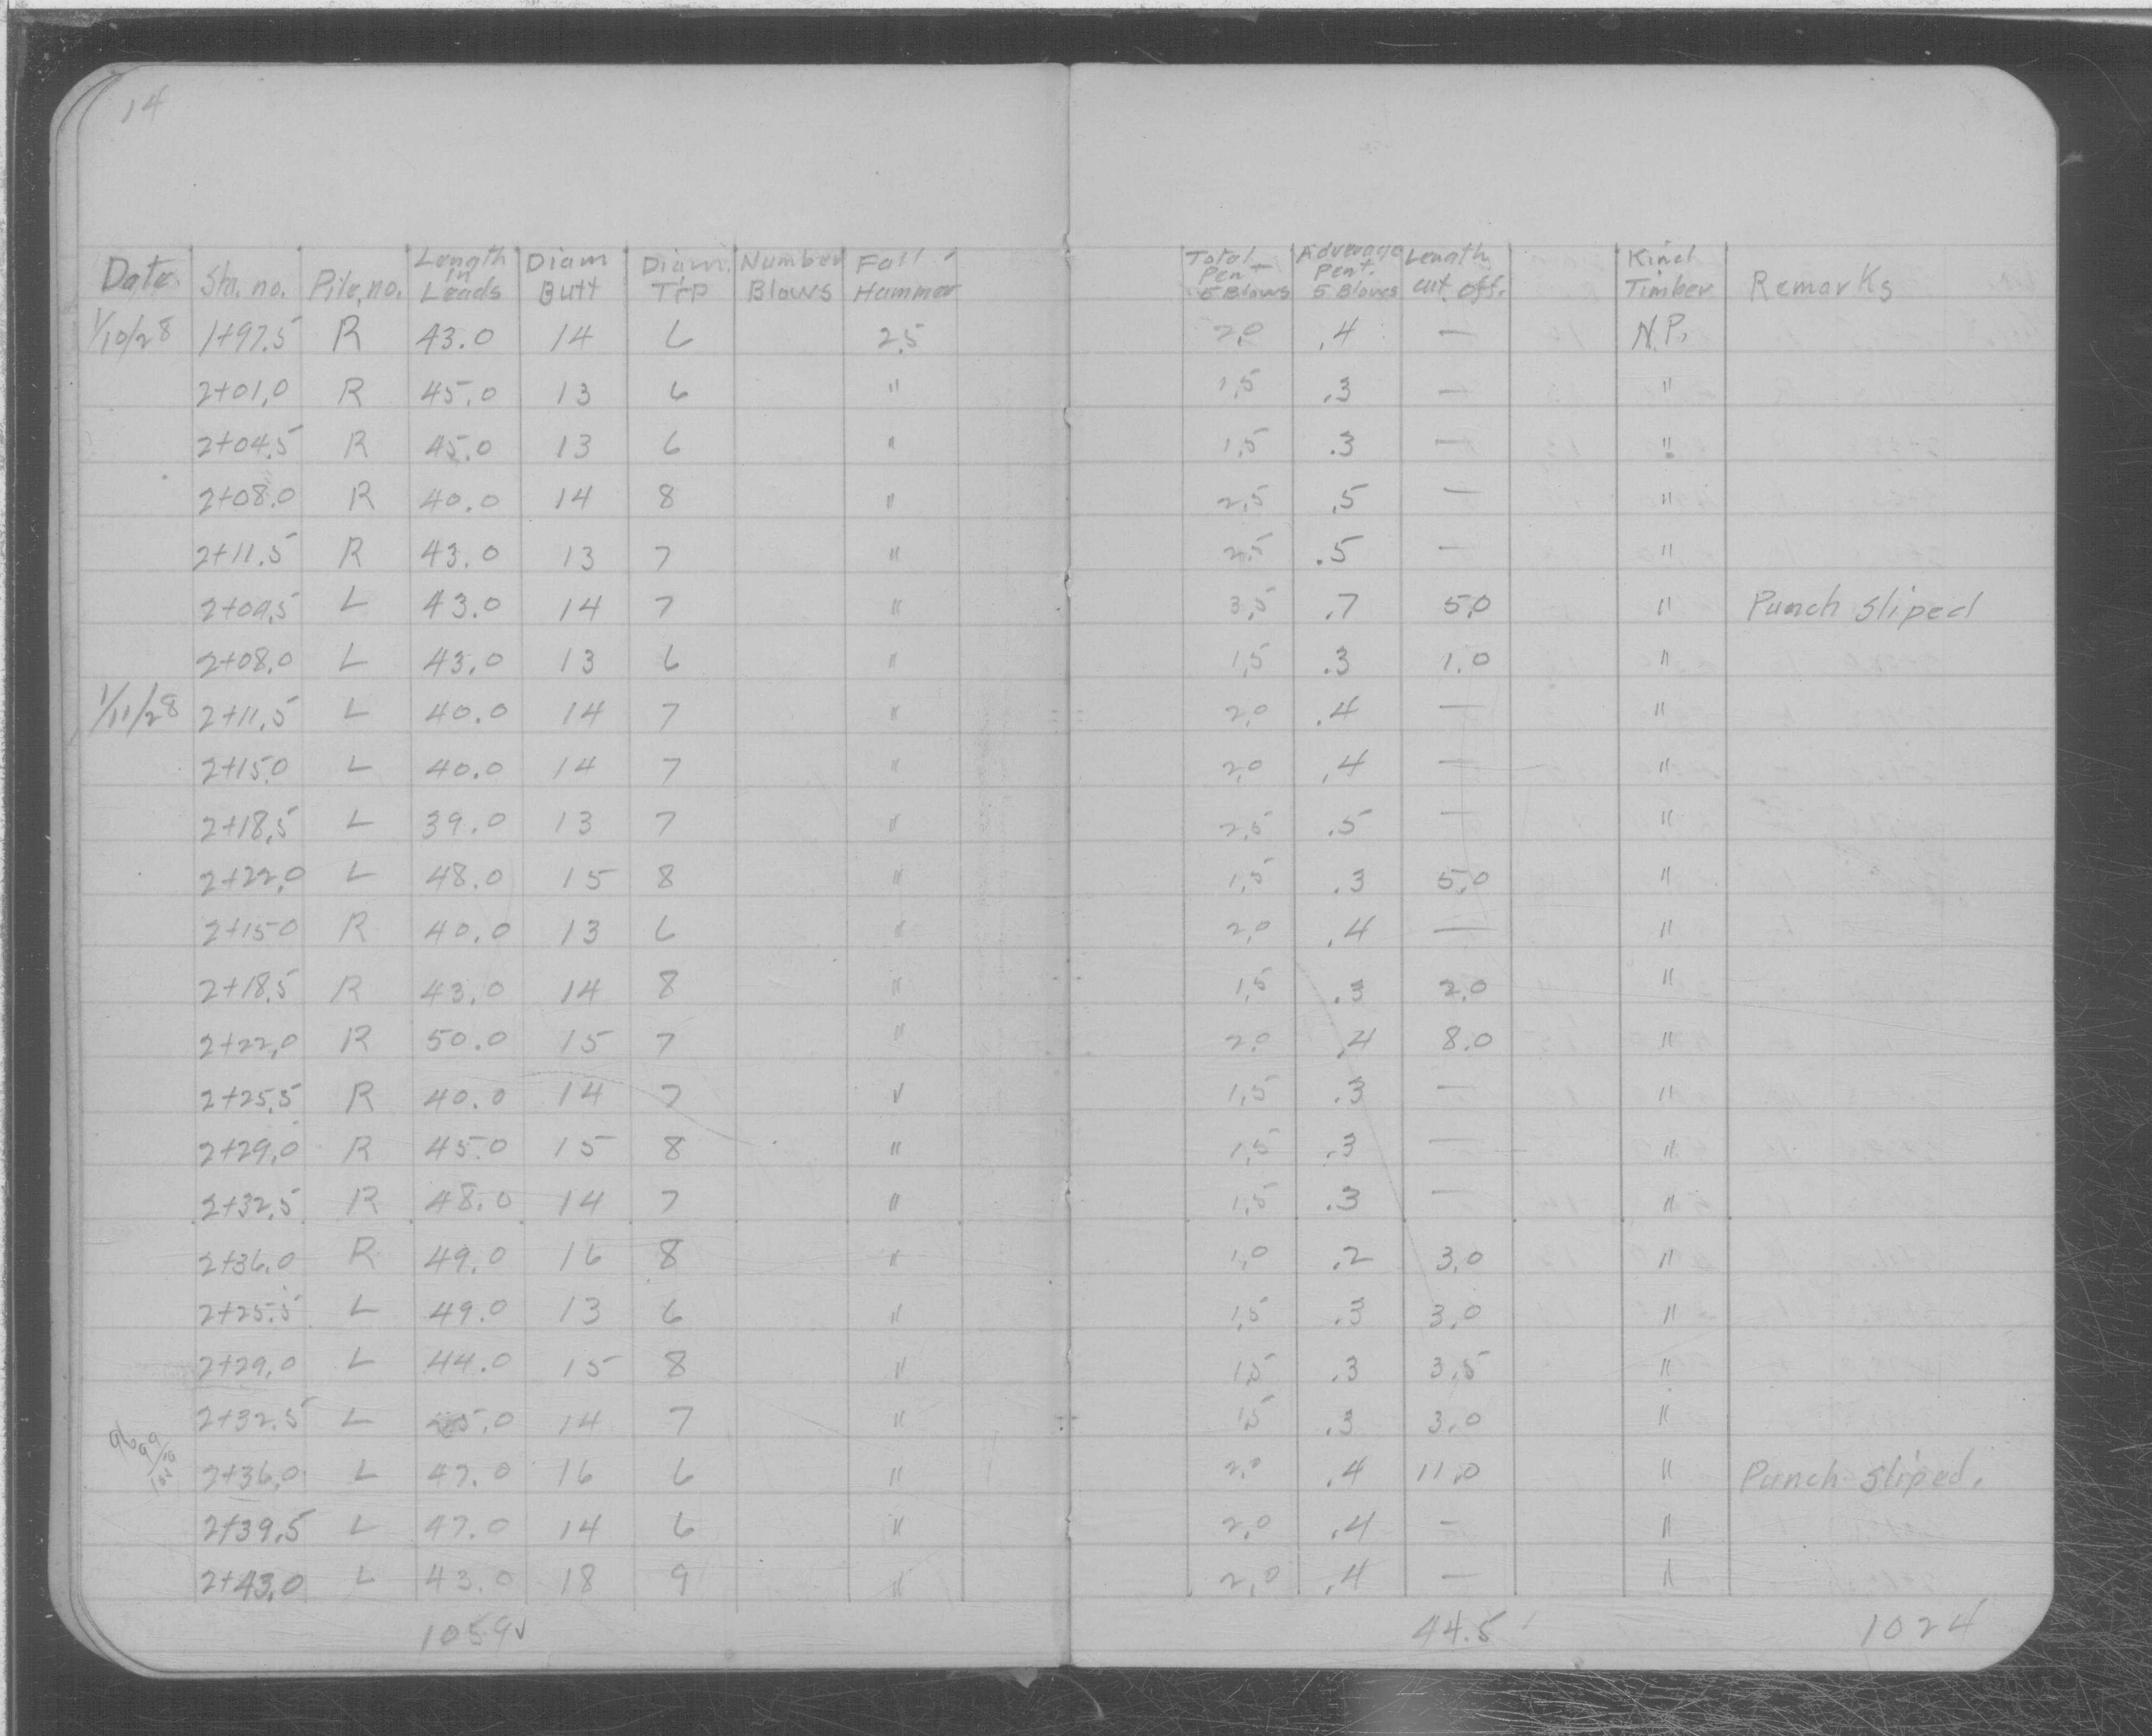 14
Date Sta. no. Pile, no. Length in Leads Diam Butt Diam. Tip Number Blows Fall Hammer Total Pen- 5 Blows Adverage Pent. 5 Blows Length cut off. Kind Timber Remarks
1/10/28 1+97.5 R 43.0 14 6 25 2.0 .4 — N.P.
2+01.0 R 45.0 13 6 " 1.5 .3 — "
2+04.5 R 45.0 13 6 " 1.5 .3 — "
2+08.0 R 40.0 14 8 " 2.5 .5 — "
2+11.5 R 43.0 13 7 " 2.5 .5 — "
2+04.5 L 43.0 14 7 " 3.5 .7 5.0 " Punch sliped
2+08.0 L 43.0 13 6 " 1.5 .3 1.0 "
1/11/28 2+11.5 L 40.0 14 7 " 2.0 .4 — "
2+15.0 L 40.0 14 7 " 2.0 .4 — "
2+18.5 L 39.0 13 7 " 2.5 .5 — "
2+22.0 L 48.0 15 8 " 1.5 .3 5.0 "
2+15.0 R 40.0 13 6 " 2.0 .4 — "
2+18.5 R 43.0 14 8 " 1.5 .3 2.0 "
2+22.0 R 50.0 15 7 " 2.0 .4 8.0 "
2+25.5 R 40.0 14 7 " 1.5 .3 — "
2+29.0 R 45.0 15 8 " 1.5 .3 — "
2+32.5 R 48.0 14 7 " 1.5 .3 — "
2+36.0 R 49.0 16 8 " 1.0 .2 3.0 "
2+25.5 L 49.0 13 6 " 1.5 .3 3.0 "
2+29.0 L 44.0 15 8 " 1.5 .3 3.5 "
2+32.5 L 45.0 14 7 " 1.5 .3 3.0 "
2+36.0 L 47.0 16 6 " 2.0 .4 11.0 " Punch sliped.
2+39.5 L 47.0 14 6 " 2.0 .4 - "
2+43.0 L 43.0 18 9 " 2.0 .4 — "
1059✓ 44.5 1024